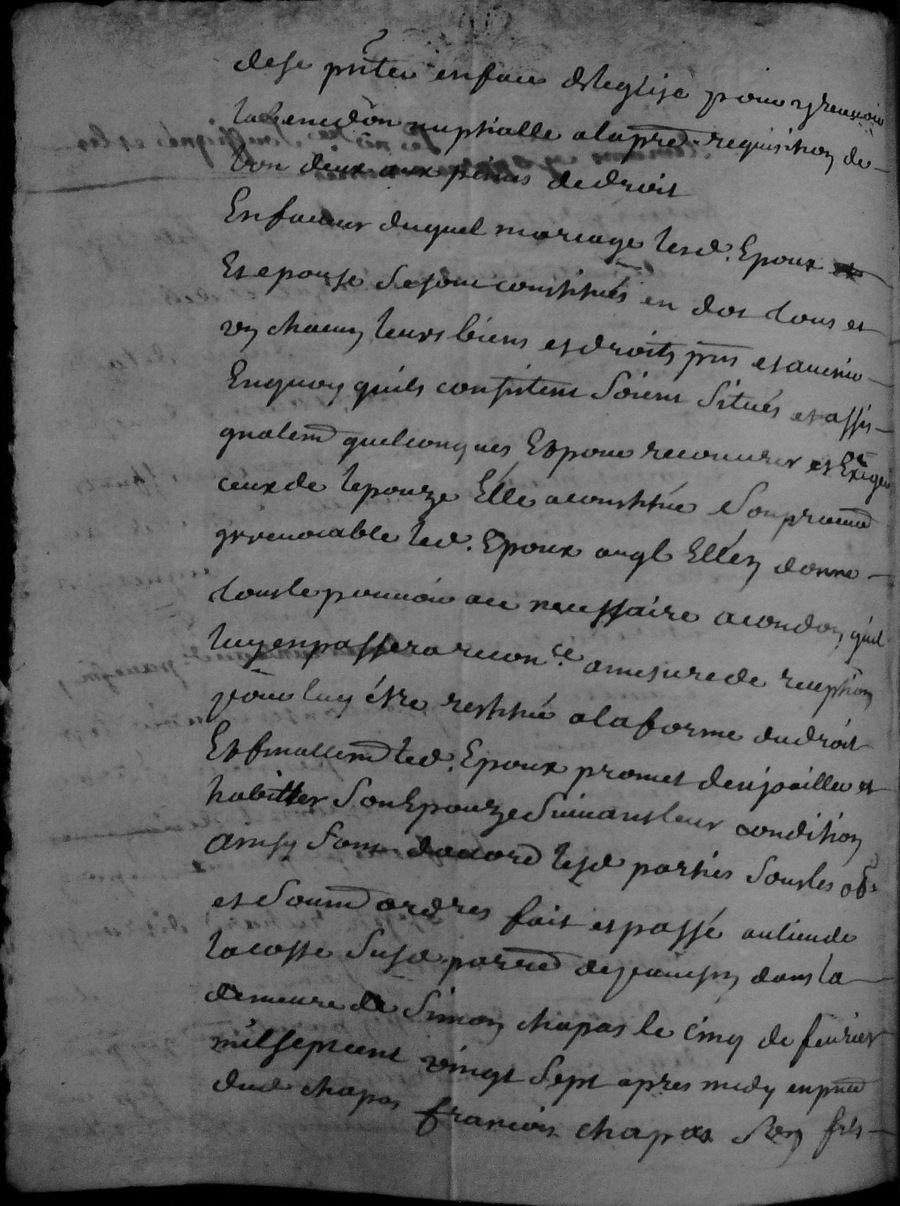 de se pnter en face de leglise pour y recevoir
la benedon nuptialle a la pre requisition de
lun deux aux peines de droit
En faveur duquel mariage lesd. Epoux
Et epouse se sont constitués en dot tous et
un chacun leurs biens et droits pnts et avenir
En quoy quils consistent soient situés et assi-
gnalemt quelconques Et pour recouvrer et Exiger
ceux de lepouze Elle a constitué son procur
irrevocable led. Epoux auql Elle en donne
tout le pouvoir a ce necessaire a condon quil
luy en passera reconce a mesure de reception
pour luy etre restitué a la forme du droit
Et finallemt led. Epoux promet denjoailler et
habitter son Epouze suivant leur condition
ainsy sont dacord lesd parties sous les obs
et soumd ordres fait et passé au lieu de
lacoste susd parred de dans la
demeure de Simon chapas le cinq de fevrier
mil sept cent vingt sept apres midy en pnce
dud chapas francois chapas son fils